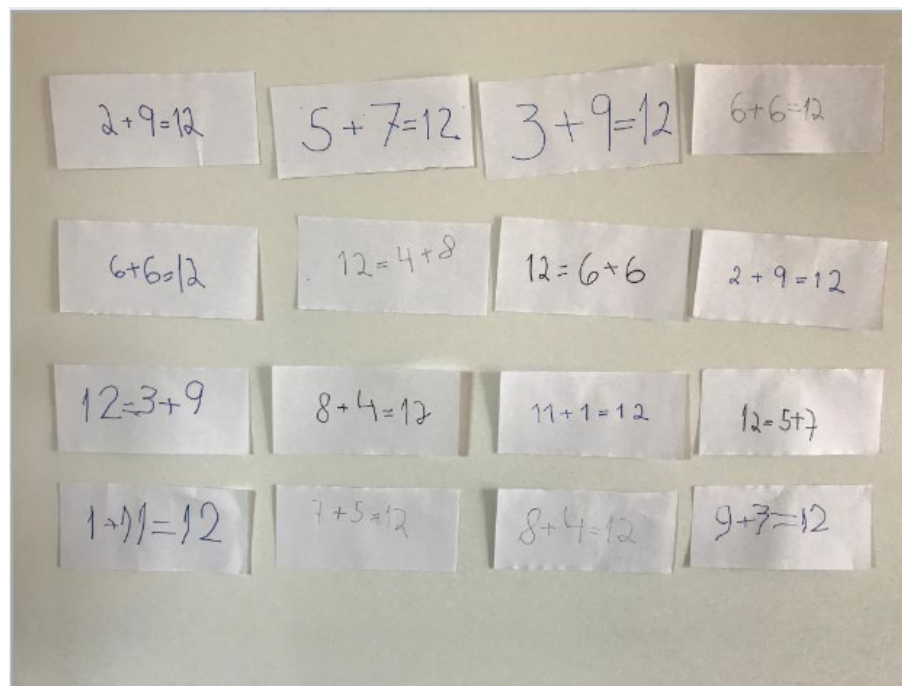 2+9=12
5+7=12
3+9=12
6+6=12
6+6=12
12=4+8
12=6+6
2+9=12
12=3+9
8+4=12
11+1=12
12=5+7
1+11=12
7+5=12
8+4=12
9+3=12